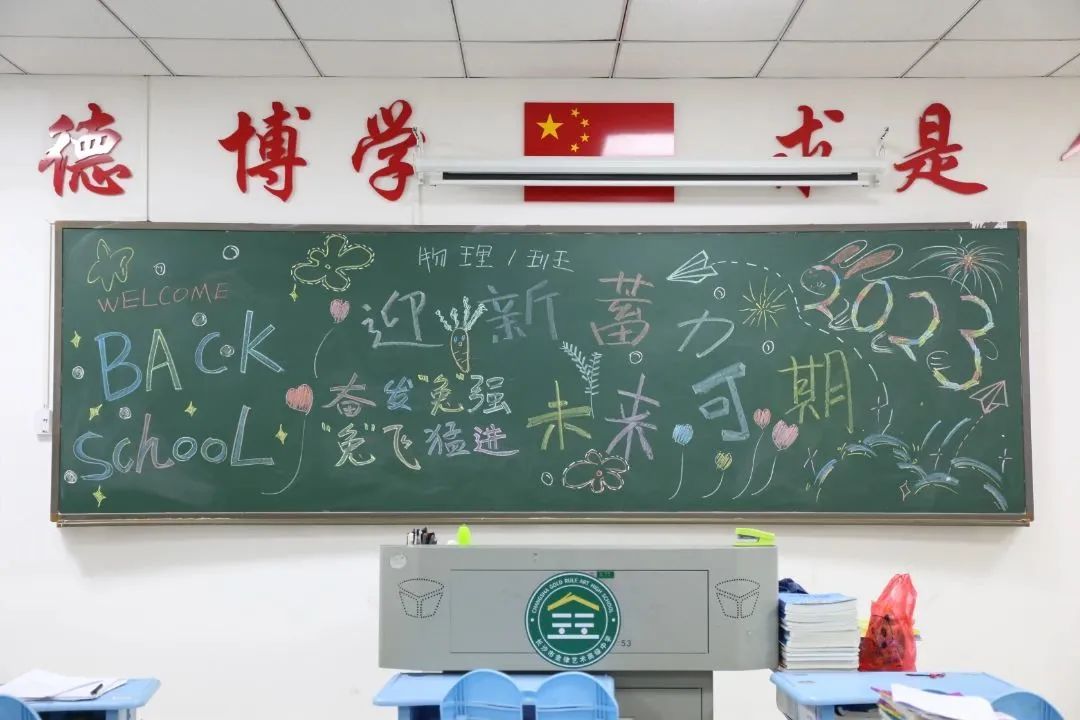 德 博学 求是
物理1班
WELCOME
BACK
SchooL
迎新蓄力
未来可期
奋发“兔”强
“兔”飞猛进
2023
CHANGSHA GOLD RULE ART HIGH SCHOOL
长沙市金律艺术高级中学
53